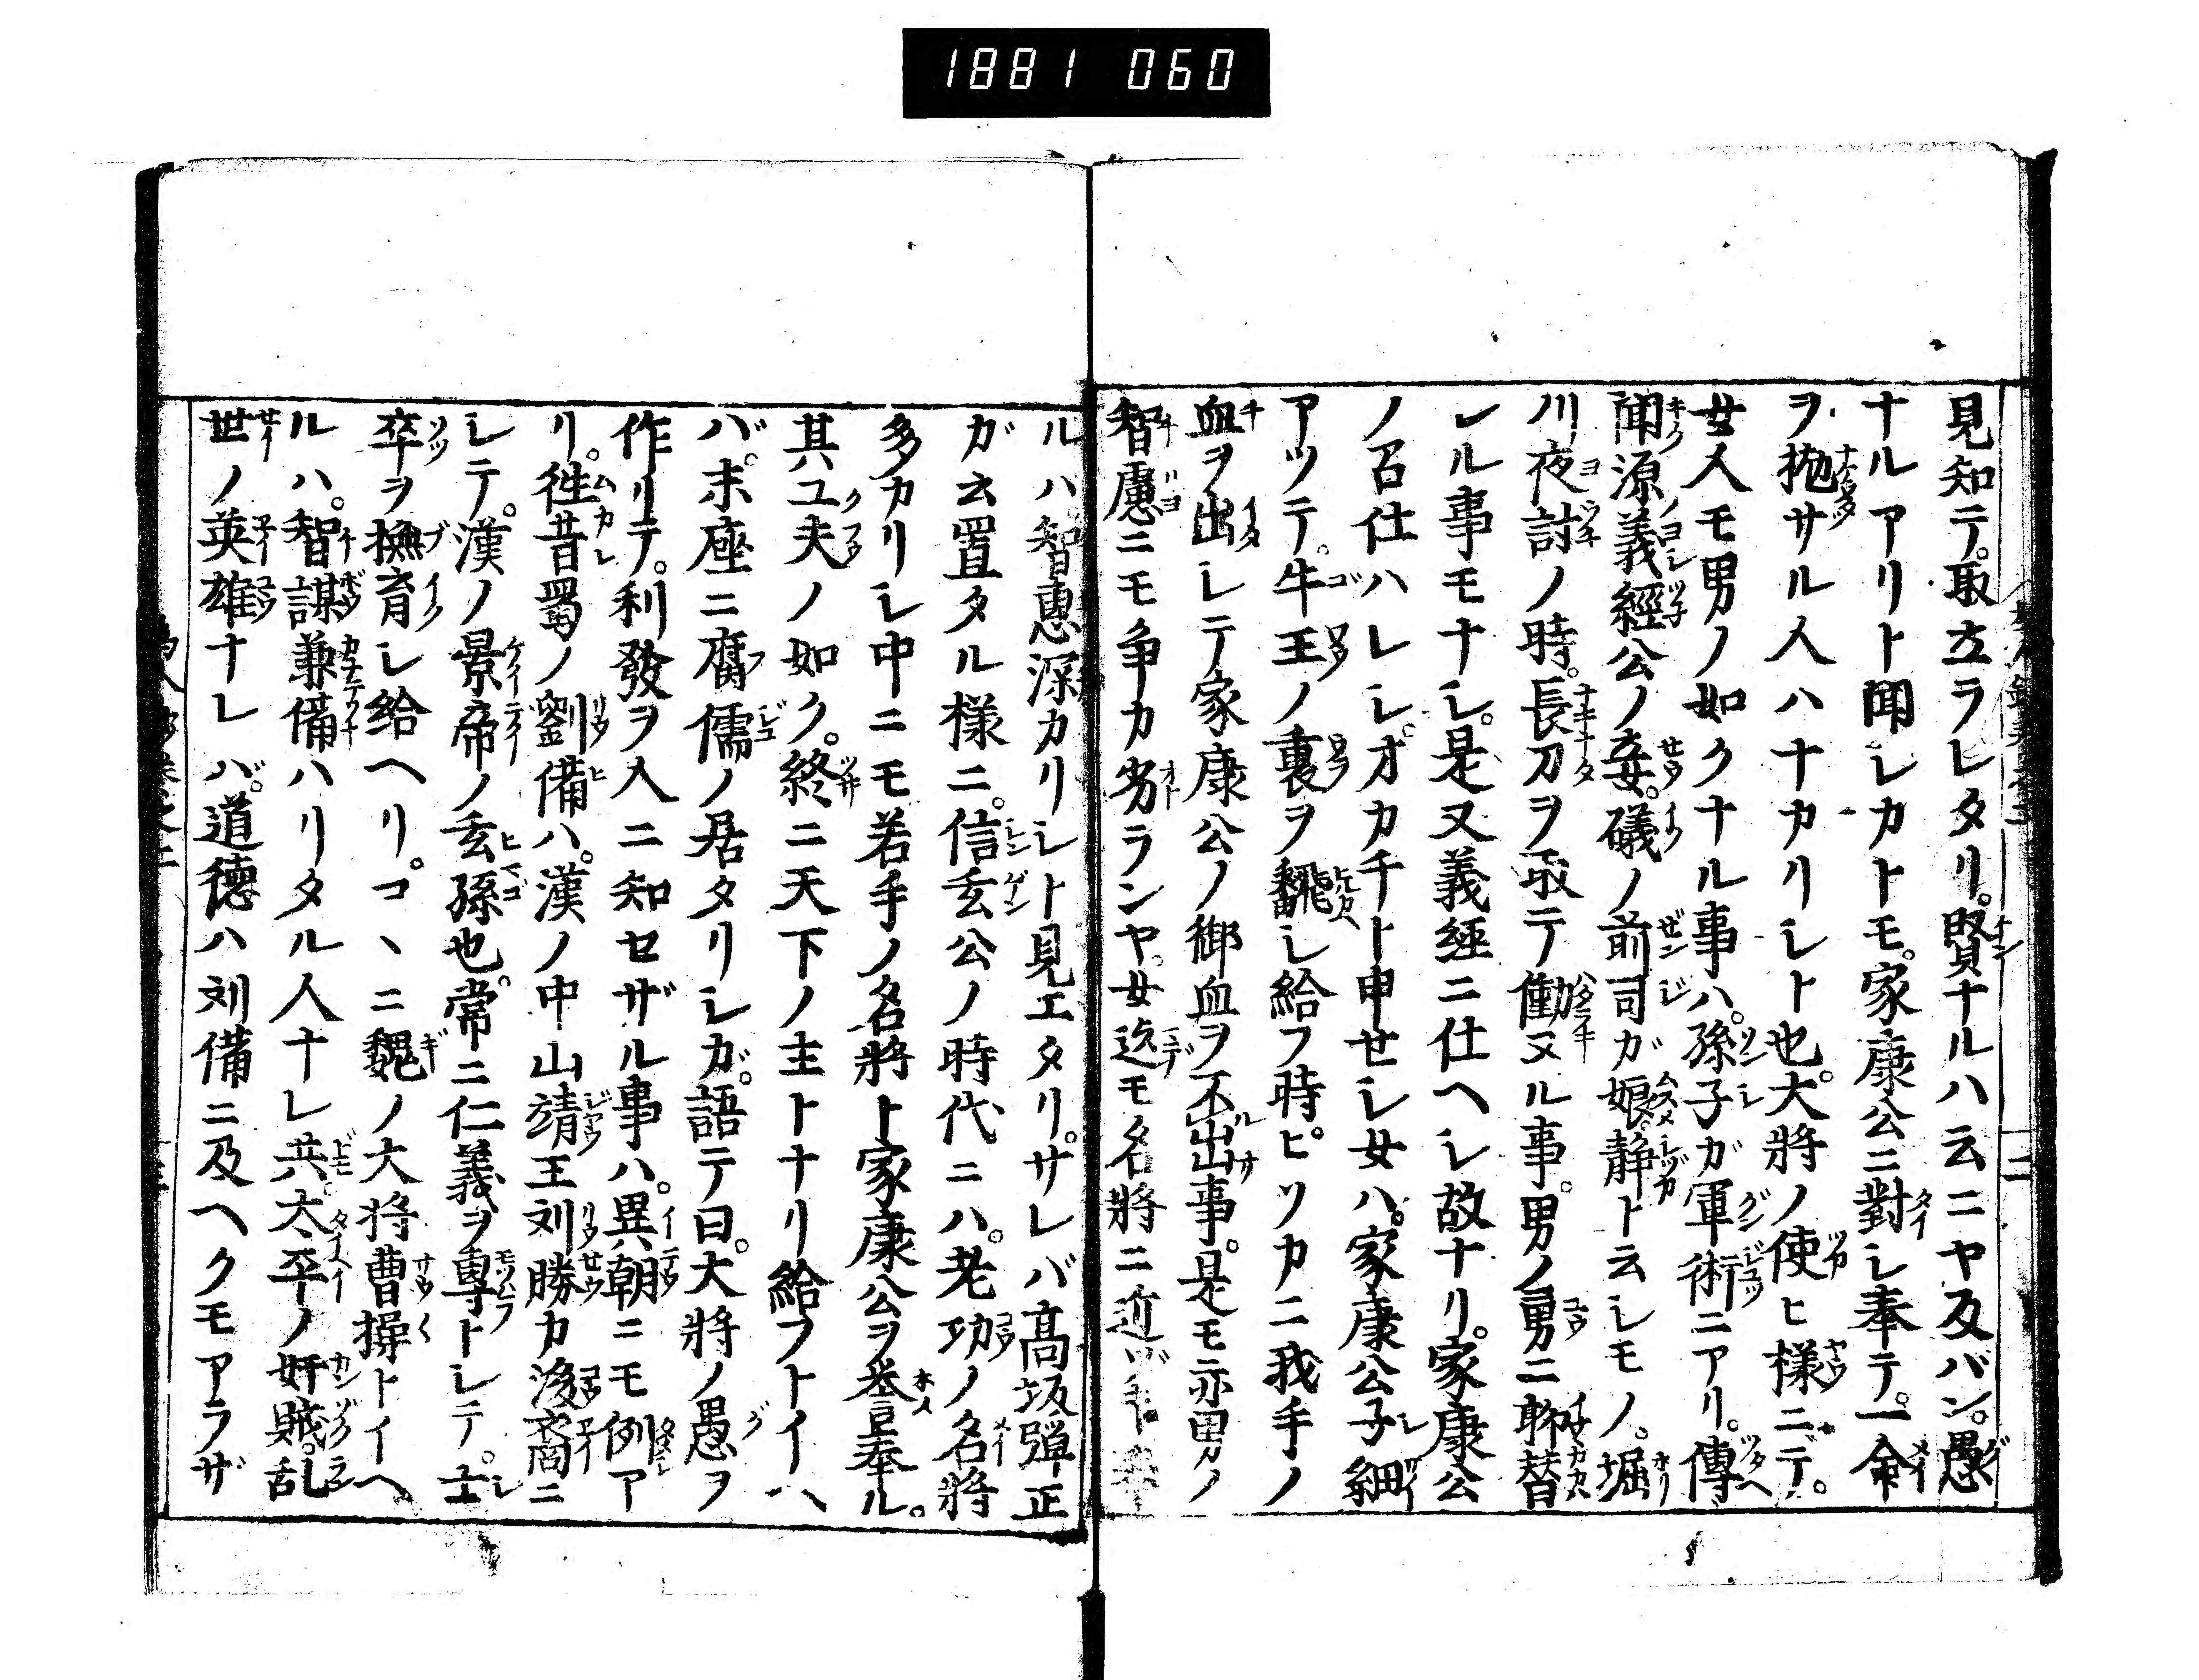 1881 060
見知テ。取立ラレタリ。賢ナルハ云ニヤ及バン。愚
ナルアリト聞レカトモ。家康公ニ對し奉テ。一命
ヲ抛サル人ハナカリしト也。大將ノ使ヒ様ニテ。
女人モ男ノ如クナル事ハ。孫子ガ軍術ニアリ。傳
聞源義經公ノ妾。礒ノ前司ガ娘。静ト云しモノ。堀
川夜討ノ時。長刀ヲ取テ働ヌル事。男ノ勇ニ聊替
レル事モナし。是又義經ニ仕ヘし故ナリ。家康公
ノ召仕ハレし。オカチト申せし女ハ。家康公子細
アツテ。牛王ノ裏ヲ翻し給フ時。ヒソカニ我手ノ
血ヲ出しテ家康公ノ御血ヲ不出事。是モ亦男ノ
智慮ニモ争カ劣ランヤ。女迄モ名將ニ近
ルハ。智惠深カリしト見エタリ。サレバ高坂彈正
ガ云置タル様ニ。信玄公ノ時代ニハ。老功ノ名將
多カリし中ニモ若手ノ名將ト家康公ヲ誉奉ル。
其工夫ノ如ク。終ニ天下ノ主トナリ給フトイヘ
バ。末座ニ腐儒ノ居タリしガ。語テ曰。大將ノ愚ヲ
作リテ。利發ヲ人ニ知セザル事ハ。異朝ニモ例ア
リ。徃昔蜀ノ劉備ハ。漢ノ中山靖王刘勝カ後裔ニ
しテ。漢ノ景帝ノ玄孫也。常ニ仁義ヲ專トしテ。士
卒ヲ撫育し給ヘリ。コヽニ魏ノ大将曹操トイヘ
ルハ。智謀兼備ハリタル人ナレ共。太平ノ奸賊。乱
世ノ英雄ナレバ。道德ハ刘備ニ及ヘクモアラザ